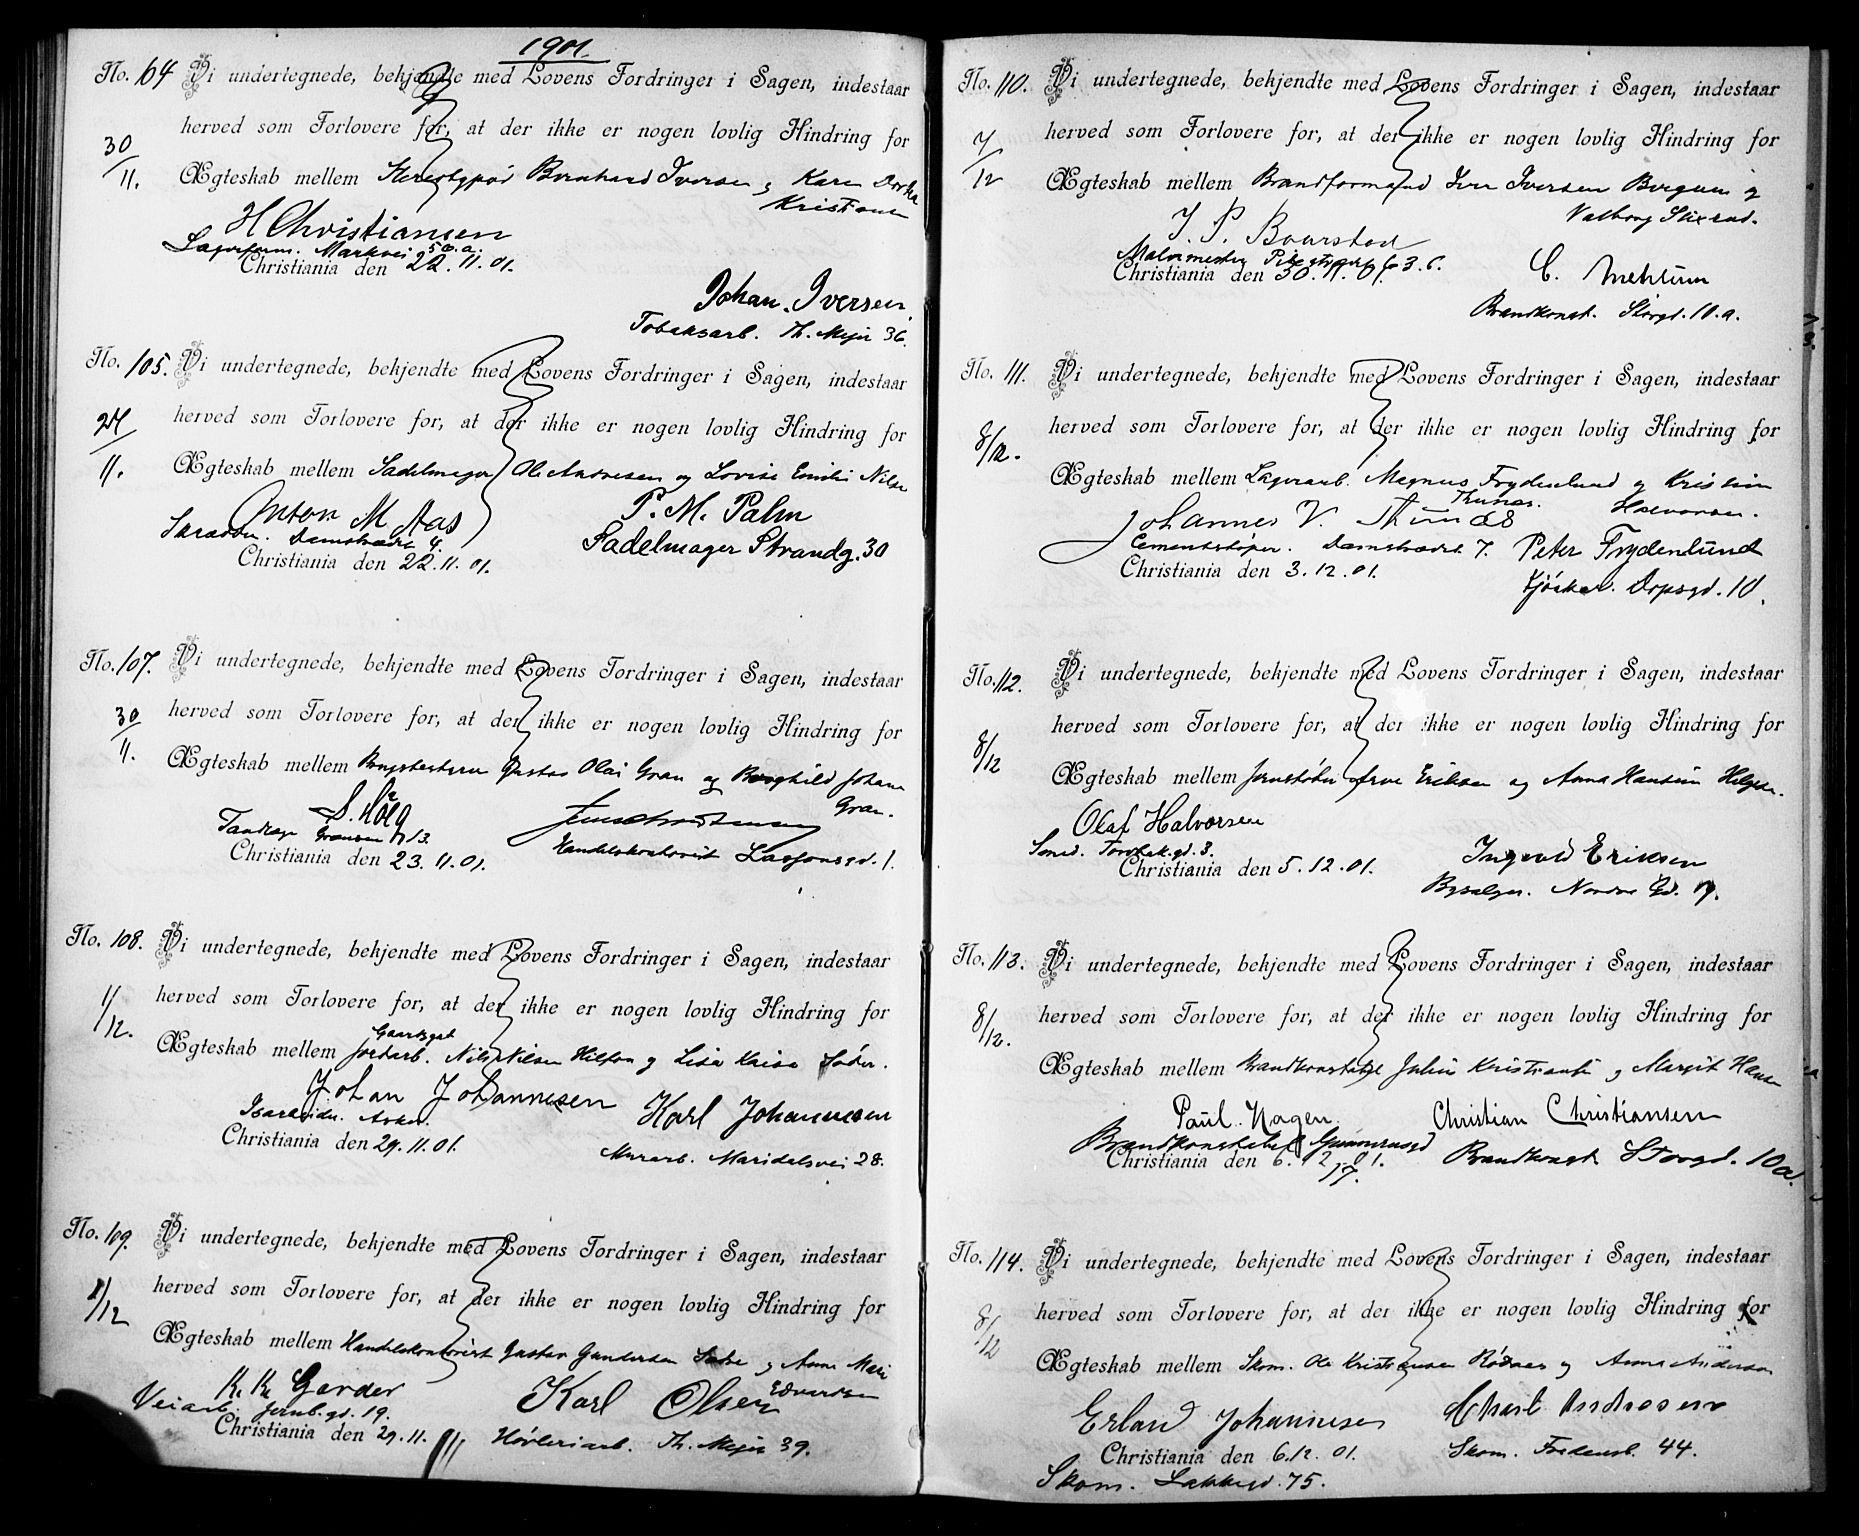 1901.
No. 64 Vi undertegnede, bekjendte med Lovens Fordringer i Sagen, indestaar
herved som Forlovere for, at der ikke er nogen lovlig Hindring for
30/11. Ægteskab mellem Bernhard Iversen og Karen
H Christiansen
Markvei 50.a.
Christiania den 22.11.01.
Johan Iversen
Tobaksarb. Th. Mejer 36.
No. 105. Vi undertegnede, bekjendte med Lovens Fordringer i Sagen, indestaar
herved som Forlovere for, at der ikke er nogen lovlig Hindring for
11. Ægteskab mellem Sadelmager Ole Andresen og Lovise Emilie Nilsen
Anton M Aas P. M. Palm
Damstrædet 4. Sadelmager Strandg. 30
Christiania den 22.11.01.
No. 107. Vi undertegnede, bekjendte med Lovens Fordringer i Sagen, indestaar
herved som Forlovere for, at der ikke er nogen lovlig Hindring for
30/11. Ægteskab mellem Gustav Olai Gran og Borghild Johanne
Gran.
S. Høeg
Tandlæge Grænsen 13.
Handelskontorist 1.
Christiania den 23.11.01.
No. 108. Vi undertegnede, bekjendte med Lovens Fordringer i Sagen, indestaar
herved som Forlovere for, at der ikke er nogen lovlig Hindring for
Gaardsgut
1/12. Ægteskab mellem Jordarb. Nils Nilsen og Lisa
Johan Johannesen Karl Johannesen
Asker.
Christiania den 29.11.01. Murarb. Maridalsvei 28.
No. 109. Vi undertegnede, bekjendte med Lovens Fordringer i Sagen, indestaar
herved som Forlovere for, at der ikke er nogen lovlig Hindring for
1/12 Ægteskab mellem Handelskontorist Gustav Gundersen og Anna Marie
Edvardsen
K. K. Garder Karl Olsen
Veiarb. Jernb.gd. 19.
Christiania den 29.11. Høvleriarb. Th. Mejer 39.
No. 110. Vi undertegnede, bekjendte med Lovens Fordringer i Sagen, indestaar
herved som Forlovere for, at der ikke er nogen lovlig Hindring for
7/12 Ægteskab mellem Brandformand Iver Iversen Borgum og
Valborg
J. P. Baarstad
Malermester
Christiania den 30.11.01.
C. Mehlum
Brandkonst. Storgd. 10.a.
No. 111. Vi undertegnede, bekjendte med Lovens Fordringer i Sagen, indestaar
herved som Forlovere for, at der ikke er nogen lovlig Hindring for
8/12. Ægteskab mellem Lagerarb. Magnus Frydenlund og Kristine
Halvorsen.
Johannes V. Thunæs
Cementstøper. Damstrædet 7. Peter Frydenlund
Christiania den 3.12.01.
Dopsgd. 10.
No. 112. Vi undertegnede, bekjendte med Lovens Fordringer i Sagen, indestaar
herved som Forlovere for, at der ikke er nogen lovlig Hindring for
8/12 Ægteskab mellem Jernstøber Arve Eriksen og Anna
Olaf Halvorsen
Smed. Torvbak.gd. 3.
Christiania den 5.12.01. Ingvald Eriksen
Nordre Gd.
No. 113. Vi undertegnede, bekjendte med Lovens Fordringer i Sagen, indestaar
herved som Forlovere for, at der ikke er nogen lovlig Hindring for
8/12. Ægteskab mellem Brandkonstabel Julius og Margit Hansen
Paul Hagen Christian Christiansen
Brandkonstabel
Christiania den 6.12.01. Brandkonst. Storgd. 10a.
17.
No. 114. Vi undertegnede, bekjendte med Lovens Fordringer i Sagen, indestaar
herved som Forlovere for, at der ikke er nogen lovlig Hindring for
8/12 Ægteskab mellem Skom. Ole Kristiansen og Anna Anderson
Erland Johannesen Charl Andresen
Christiania den 6.12.01. Skom. Fredensb. 44.
Skom. Lakkegd. 75.